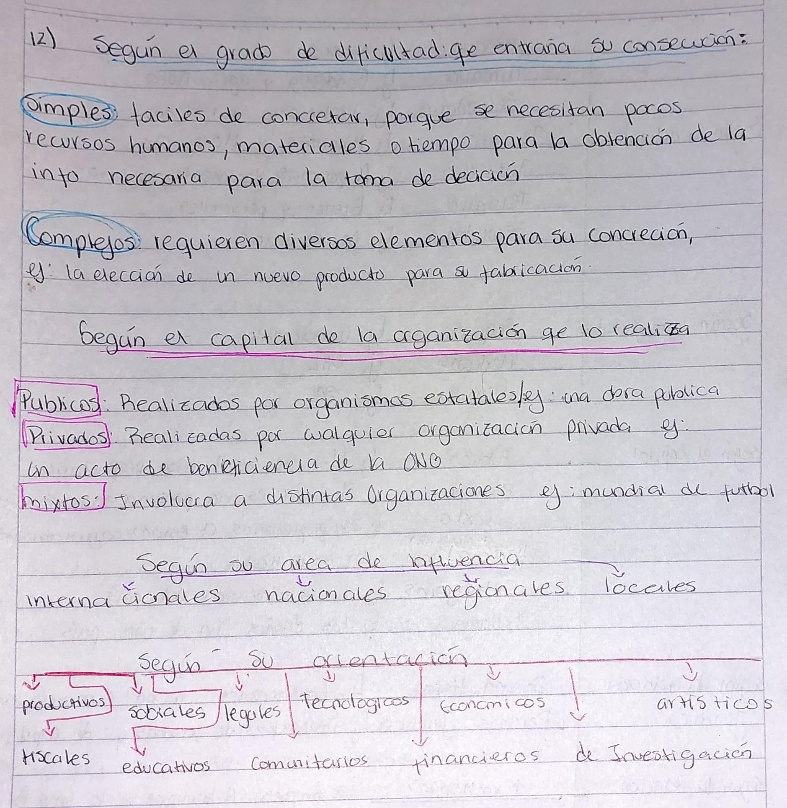 12) Según el grado de dificultad qe entraña su consecución:
Simples: faciles de concretar, porque se necesitan pocos
recursos humanos, materiales o tiempo para la obtención de la
info necesaria para la toma de decición
Complejos: requieren diversos elementos para su concreción,
ej: la elección de un nuevo producto para su fabricación.
Según el capital de la organización qe lo realiza
Publicos: Realizados por organismos estatales/ej: una obra publica
Privados: Realizadas por cualquier organización privada ej:
un acto de beneficiencia de la ONG
mixtos: Involucra a distintas Organizaciones ej: mundial de futbol
Según su area de influencia
internacionales nacionales regionales locales
Según su orientación
productivos sociales legales Tecnologicos Economicos artisticos
Fiscales educativos comunitarios financieros de Investigación